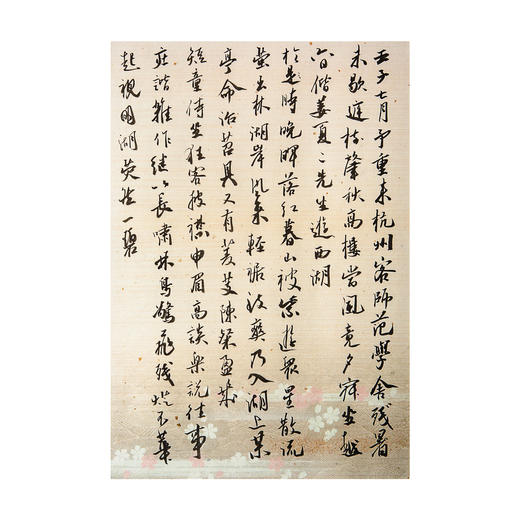 壬子七月予重来杭州客師范學舍残暑
未歇庭树肇秋高樓當風竟夕寂坐越
六日偕姜夏二先生遊西湖
於是時晚暉落红暮山被紫遊眾星散流
螢出林湖岸風来輕裾致爽乃入湖上某
亭命治茗具又有菱芰陳粲盈几
短童侍坐狂客披襟申眉高談樂說往事
莊諧雜作继以長嘯林鳥驚飛残灯不華
起視明湖莹然一碧